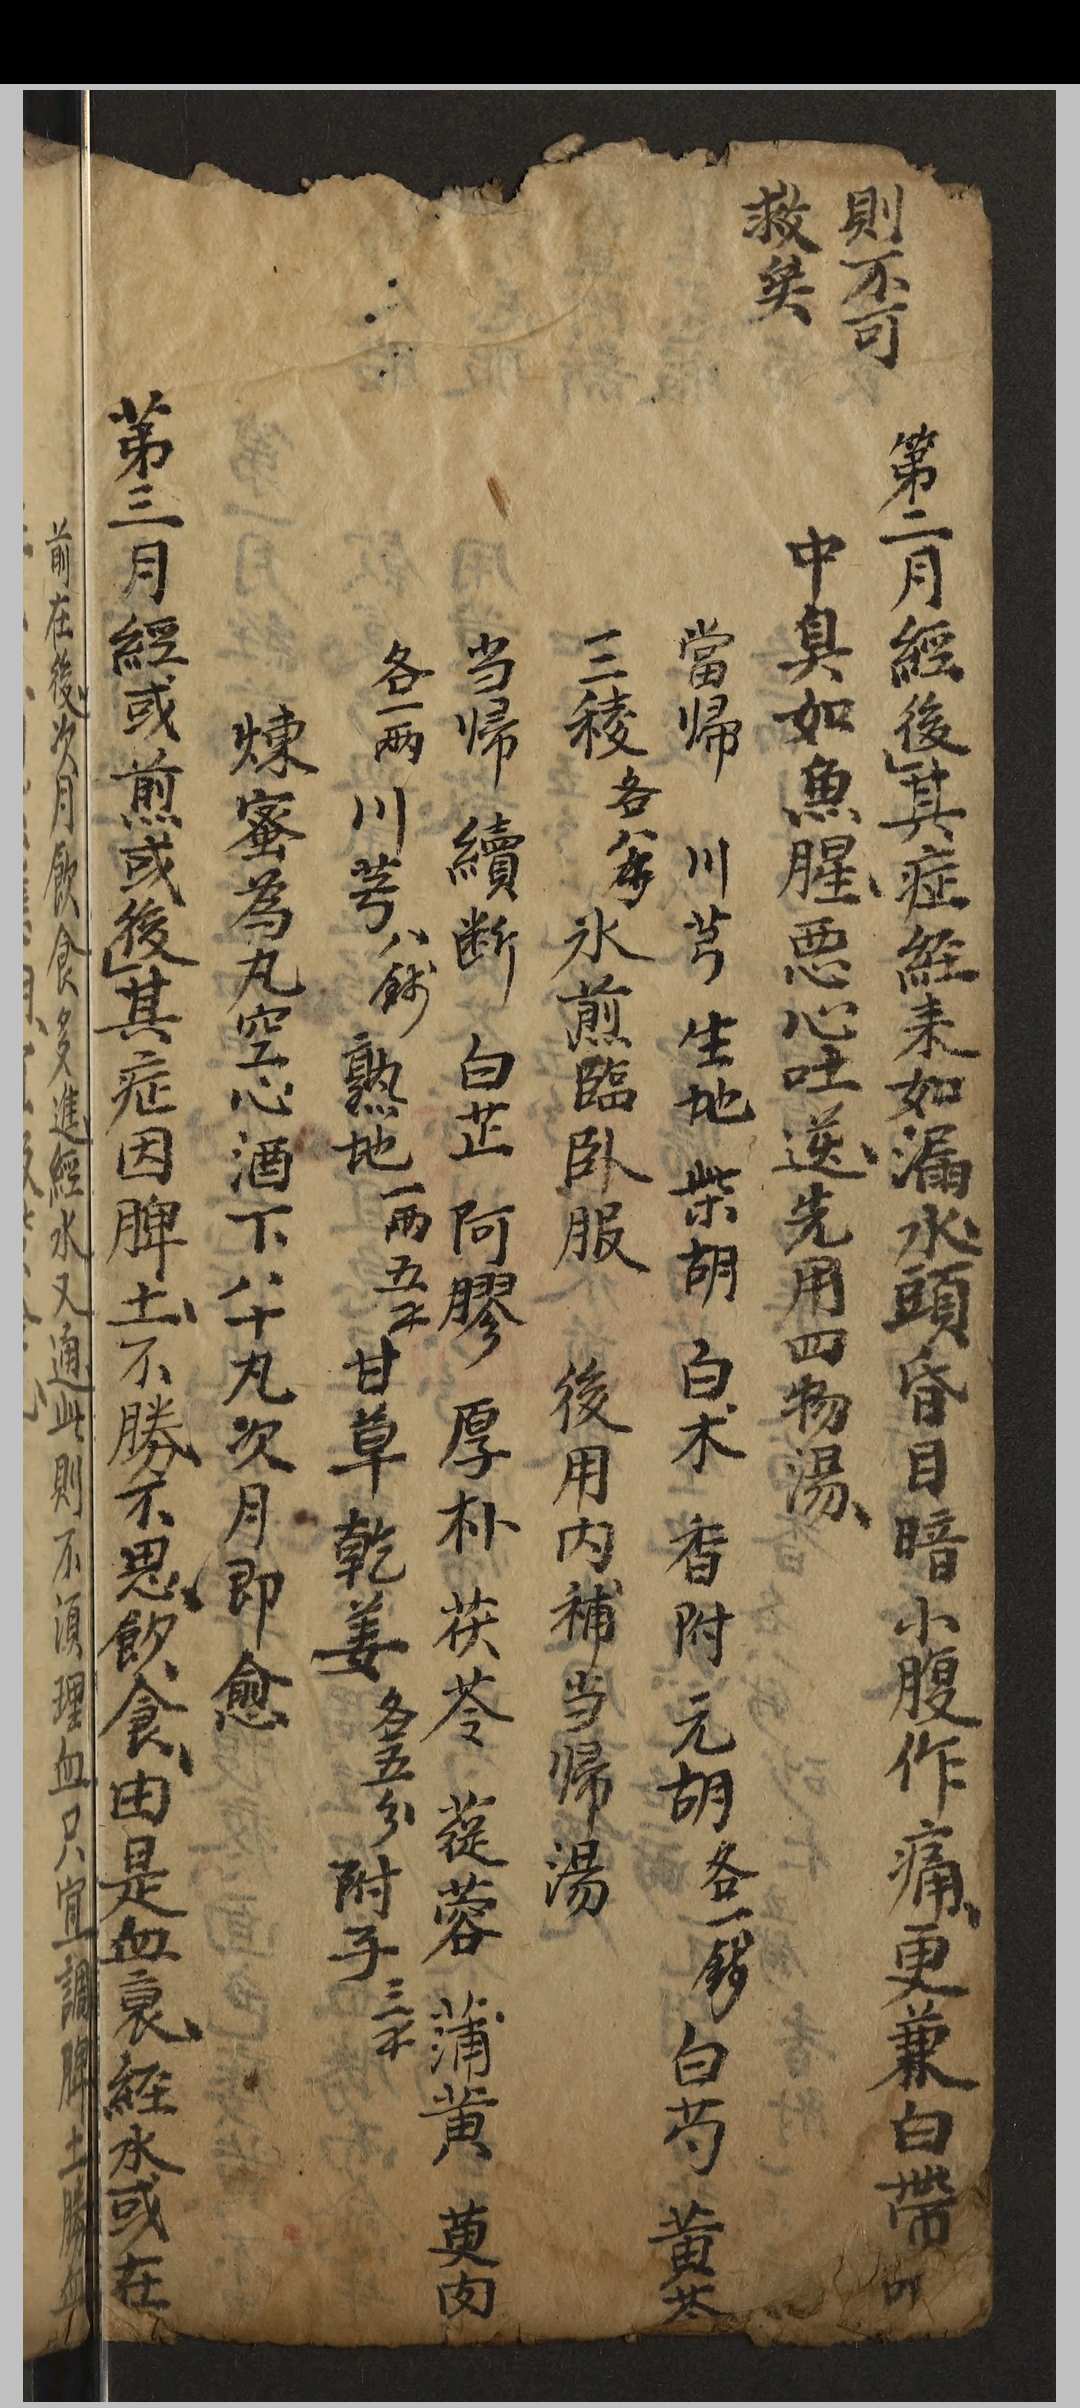 則不可
救矣
第二月經後其症經来如漏水頭昏目暗小腹作痛更兼白帶
中臭如魚腥惡心吐逆先用四物湯
當帰 川芎 生地 柴胡 白术 香附 元胡各一錢 白芍 黄芩
三稜各八分 水煎臨卧服 後用内補当帰湯
当帰 續断 白芷 阿膠 厚朴 茯苓 蓯蓉 蒲黄 萸肉
各一两 川芎八錢 熟地一两五子 甘草 乾姜各五分 附子三子
煉蜜為丸空心酒下八十丸次月即愈
苐三月經或煎或後其症因脾土不勝不思飲食由是血衰経水或在
前在後次月飲食多進經水又通此則不須理血只宜調脾土勝血